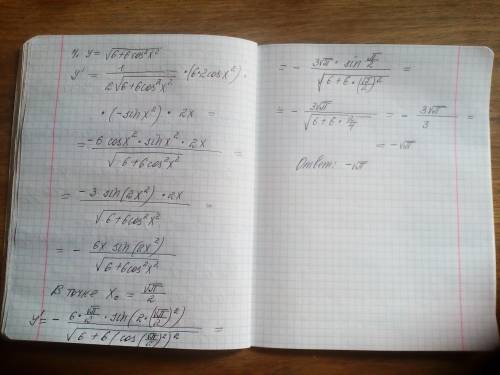 7. y = √(6+6cos²x²)
y' = 1/(2√(6+6cos²x²)) · (6·2cosx²) ·
· (-sinx²) · 2x =
= (-6 cosx² · sinx² · 2x)/√(6+6cos²x²) =
= (-3 sin(2x²) · 2x)/√(6+6cos²x²) =
= - (6x sin(2x²))/√(6+6cos²x²)
В точке x₀ = √π/2
y' = - (6 · √π/2 · sin(2·(√π/2)²))/√(6+6(cos(√π/2)²)²) =
= - (3√π · sin π/2)/√(6+6·(√2/2)²) =
= - 3√π/√(6+6·2/4) = - 3√π/3 =
= -√π
Ответ: -√π